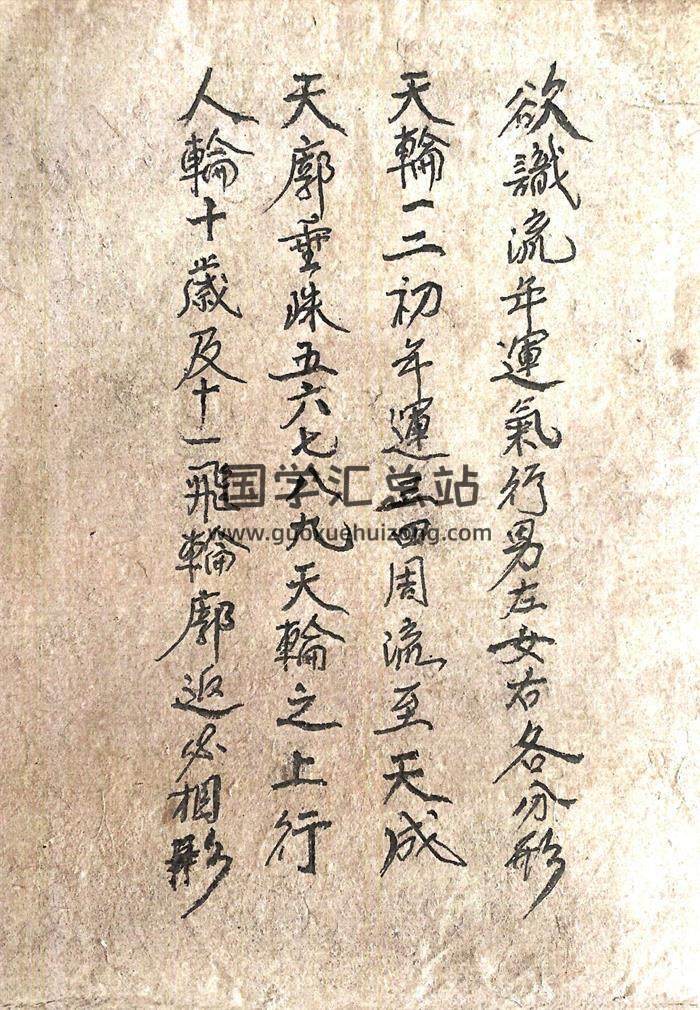 欲識流年運氣行男左女右各分形
天輪一二初年運三四周流至天成
天廓垂珠五六七八九天輪之上行
人輪十歲及十一飛輪廓返必相
国学汇总站
www.guoxuehuizong.com